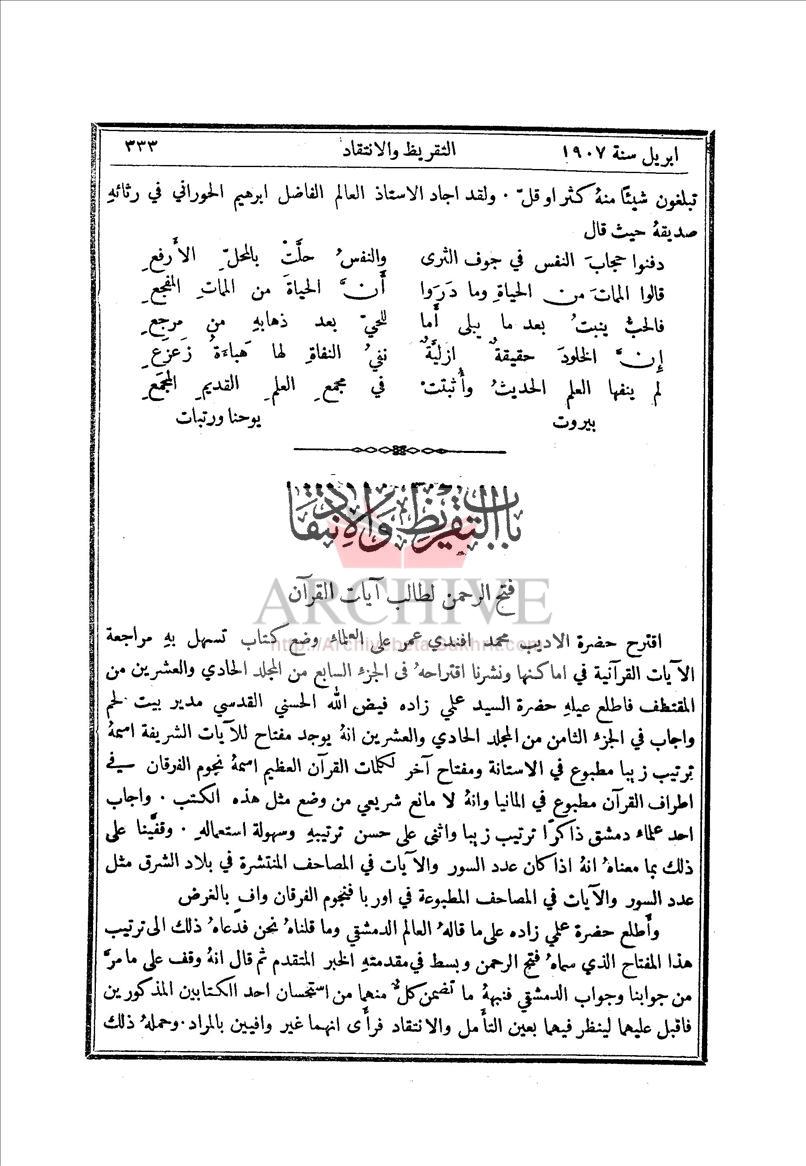 ابريل سنة ١٩٠٧ التقريظ والانتقاد ٣٣٣
تبلغون شيئًا منهُ كثر او قلّ . ولقد اجاد الاستاذ العالم الفاضل ابرهيم الحوراني في رثائهِ
صديقهُ حيث قال
دفنوا حجابَ النفس في جوف الثرى والنفسُ حلَّتْ بالمحلّ الأَرفعِ
قالوا المماتَ من الحياةِ وما دَرَوا أَنَّ الحياةَ من المماتِ المفجعِ
فالحبُّ ينبتُ بعد ما يبلى أَما للحيّ بعد ذهابهِ من مرجعِ
إِنَّ الخلودَ حقيقةٌ ازليَّةٌ نفيُ النفاقِ لها هَباءَةُ زَعزَعِ
لم ينفها العلم الحديثُ وأُثبتتْ في مجمعِ العلمِ القديمِ المجمَعِ
بيروت يوحنا ورتبات
باب التقريظ والانتقاد
فتح الرحمن لطالب آيات القرآن
اقترح حضرة الاديب محمد افندي عمر على العلماء وضع كتاب تسهل بهِ مراجعة
الآيات القرآنية في اماكنها ونشرنا اقتراحهُ في الجزء السابع من المجلد الحادي والعشرين من
المقتطف فاطلع عليهِ حضرة السيد علمي زاده فيض الله الحسني القدسي مدير بيت لحم
واجاب في الجزء الثامن من المجلد الحادي والعشرين انهُ يوجد مفتاح للآيات الشريفة اسمهُ
ترتيب زيبا مطبوع في الاستانة ومفتاح آخر لكلمات القرآن العظيم اسمهُ نجوم الفرقان في
اطراف القرآن مطبوع في المانيا وانهُ لا مانع شريعي من وضع مثل هذه الكتب . واجاب
احد علماء دمشق ذاكرًا ترتيب زيبا واثنى على حسن ترتيبهِ وسهولة استعمالهِ . وقفَّينا على
ذلك بما معناهُ انهُ اذا كان عدد السور والآيات في المصاحف المنتشرة في بلاد الشرق مثل
عدد السور والآيات في المصاحف المطبوعة في اوربا فنجوم الفرقان وافٍ بالغرض
وأَطلع حضرة علمي زاده على ما قالهُ العالم الدمشقي وما قلناهُ نحن فدعاهُ ذلك الى ترتيب
هذا المفتاح الذي سماهُ فتح الرحمن وبسط في مقدمتهِ الخبر المتقدم ثم قال انهُ وقف على ما مرَّ
من جوابنا وجواب الدمشقي فنبههُ ما تضمن كلٌّ منهما من استحسان احد الكتابين المذكورين
فاقبل عليهما لينظر فيهما بعين التأمل والانتقاد فرأى انهما غير وافيين بالمراد . وحملهُ ذلك
ARCHIVE